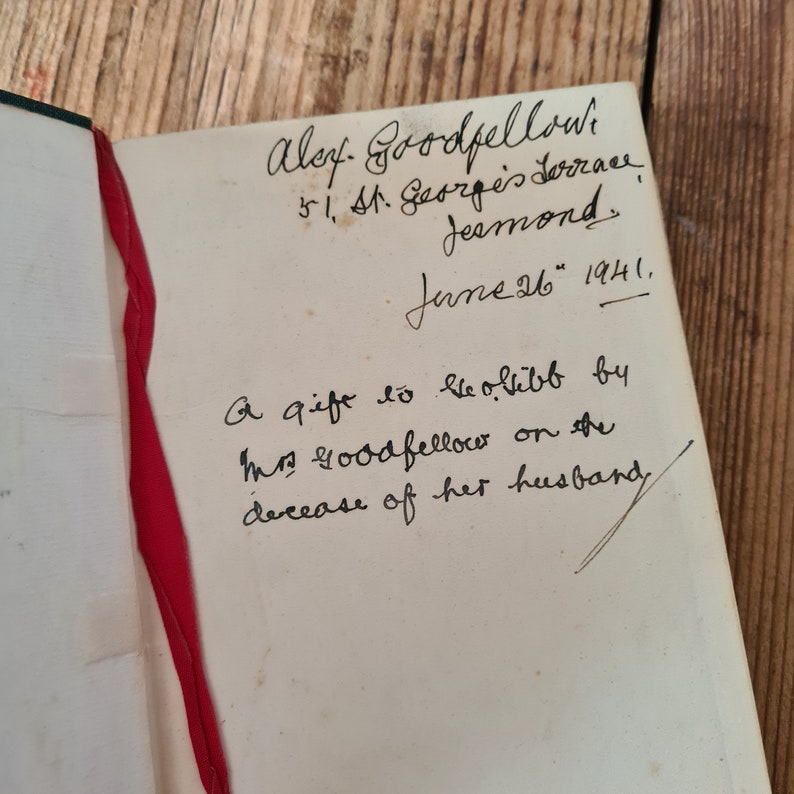 Alex. Goodfellow.
51, St. George's Terrace,
Jesmond.
June 26" 1941.
A gift to Geo. Gibb by
Mrs Goodfellow on the
decease of her husband